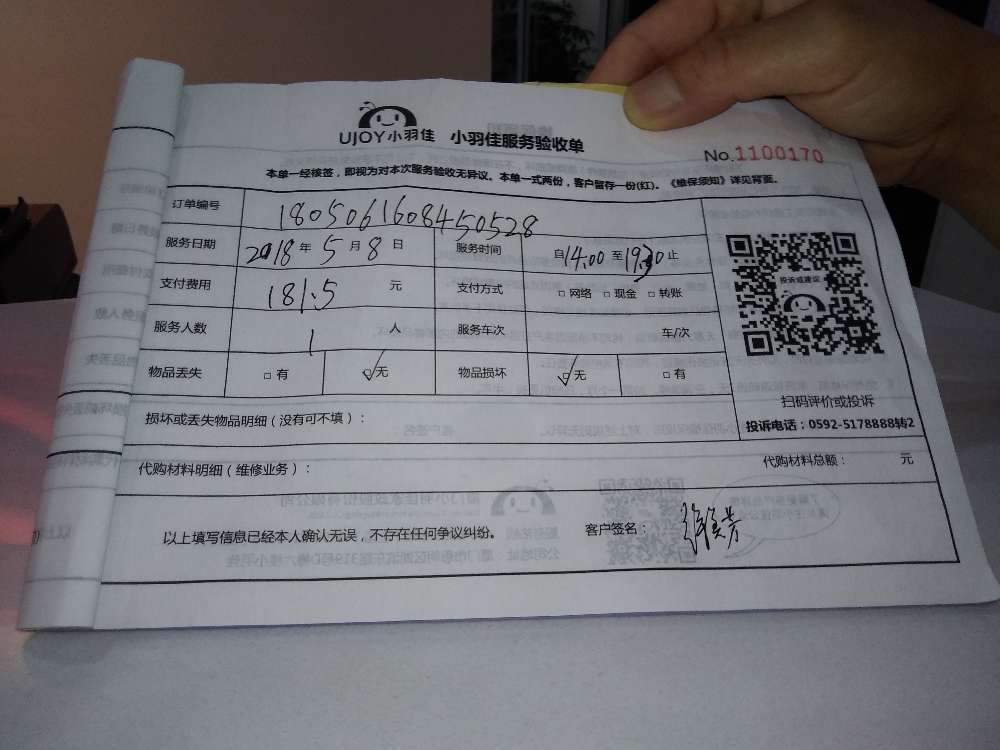 UJOY小羽佳 小羽佳服务验收单
No.1100170
本单一经核签，即视为对本次服务验收无异议。本单一式两份，客户留存一份(红)。《维保须知》详见背面。
订单编号 1805061608450528
服务日期 2018年5月8日 服务时间 自14.00至19.30止
支付费用 181.5元 支付方式 □网络 □现金 □转账
服务人数 1人 服务车次 车/次
物品丢失 □有 ☑无 物品损坏 ☑无 □有
投诉或建议
扫码评价或投诉
投诉电话：0592-5178888转2
损坏或丢失物品明细（没有可不填）：
代购材料明细（维修业务）： 代购材料总额： 元
以上填写信息已经本人确认无误，不存在任何争议纠纷。 客户签名：